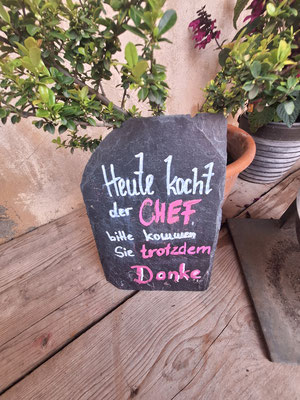 Heute kocht
der CHEF
bitte kommen
Sie trotzdem
Danke